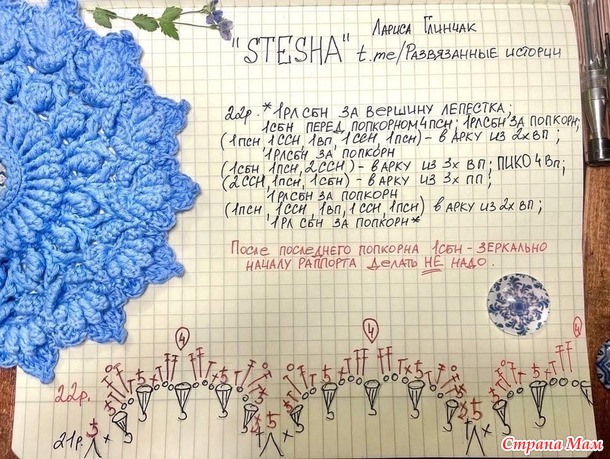 Лариса Глинчак
"STESHA" t.me/Развязанные истории
22р. *1РЛСБН ЗА ВЕРШИНУ ЛЕПЕСТКА;
1СБН ПЕРЕД ПОПКОРНОМ 4ПСН; 1РЛСБН ЗА ПОПКОРН;
(1ПСН, 1ССН, 1ВП, 1ССН, 1ПСН) – В АРКУ ИЗ 2Х ВП;
1РЛСБН ЗА ПОПКОРН
(1СБН, 1ПСН, 2ССН) – В АРКУ ИЗ 3Х ВП; ПИКО 4 Вп;
(2ССН, 1ПСН, 1СБН) – В АРКУ ИЗ 3Х ПП;
1РЛСБН ЗА ПОПКОРН
(1ПСН, 1ССН, 1ВП, 1ССН, 1ПСН) В АРКУ ИЗ 2Х ВП;
1РЛ СБН ЗА ПОПКОРН*
После последнего попкорна 1СБН – зеркально
началу раппорта делать НЕ НАДО.
4 4 4
22р.
21р.
Страна Мам